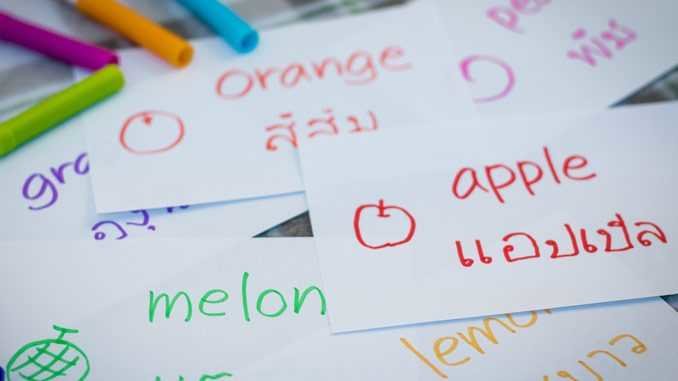 orange
สีส้ม
gra
apple
แอปเปิล
melon
lemon